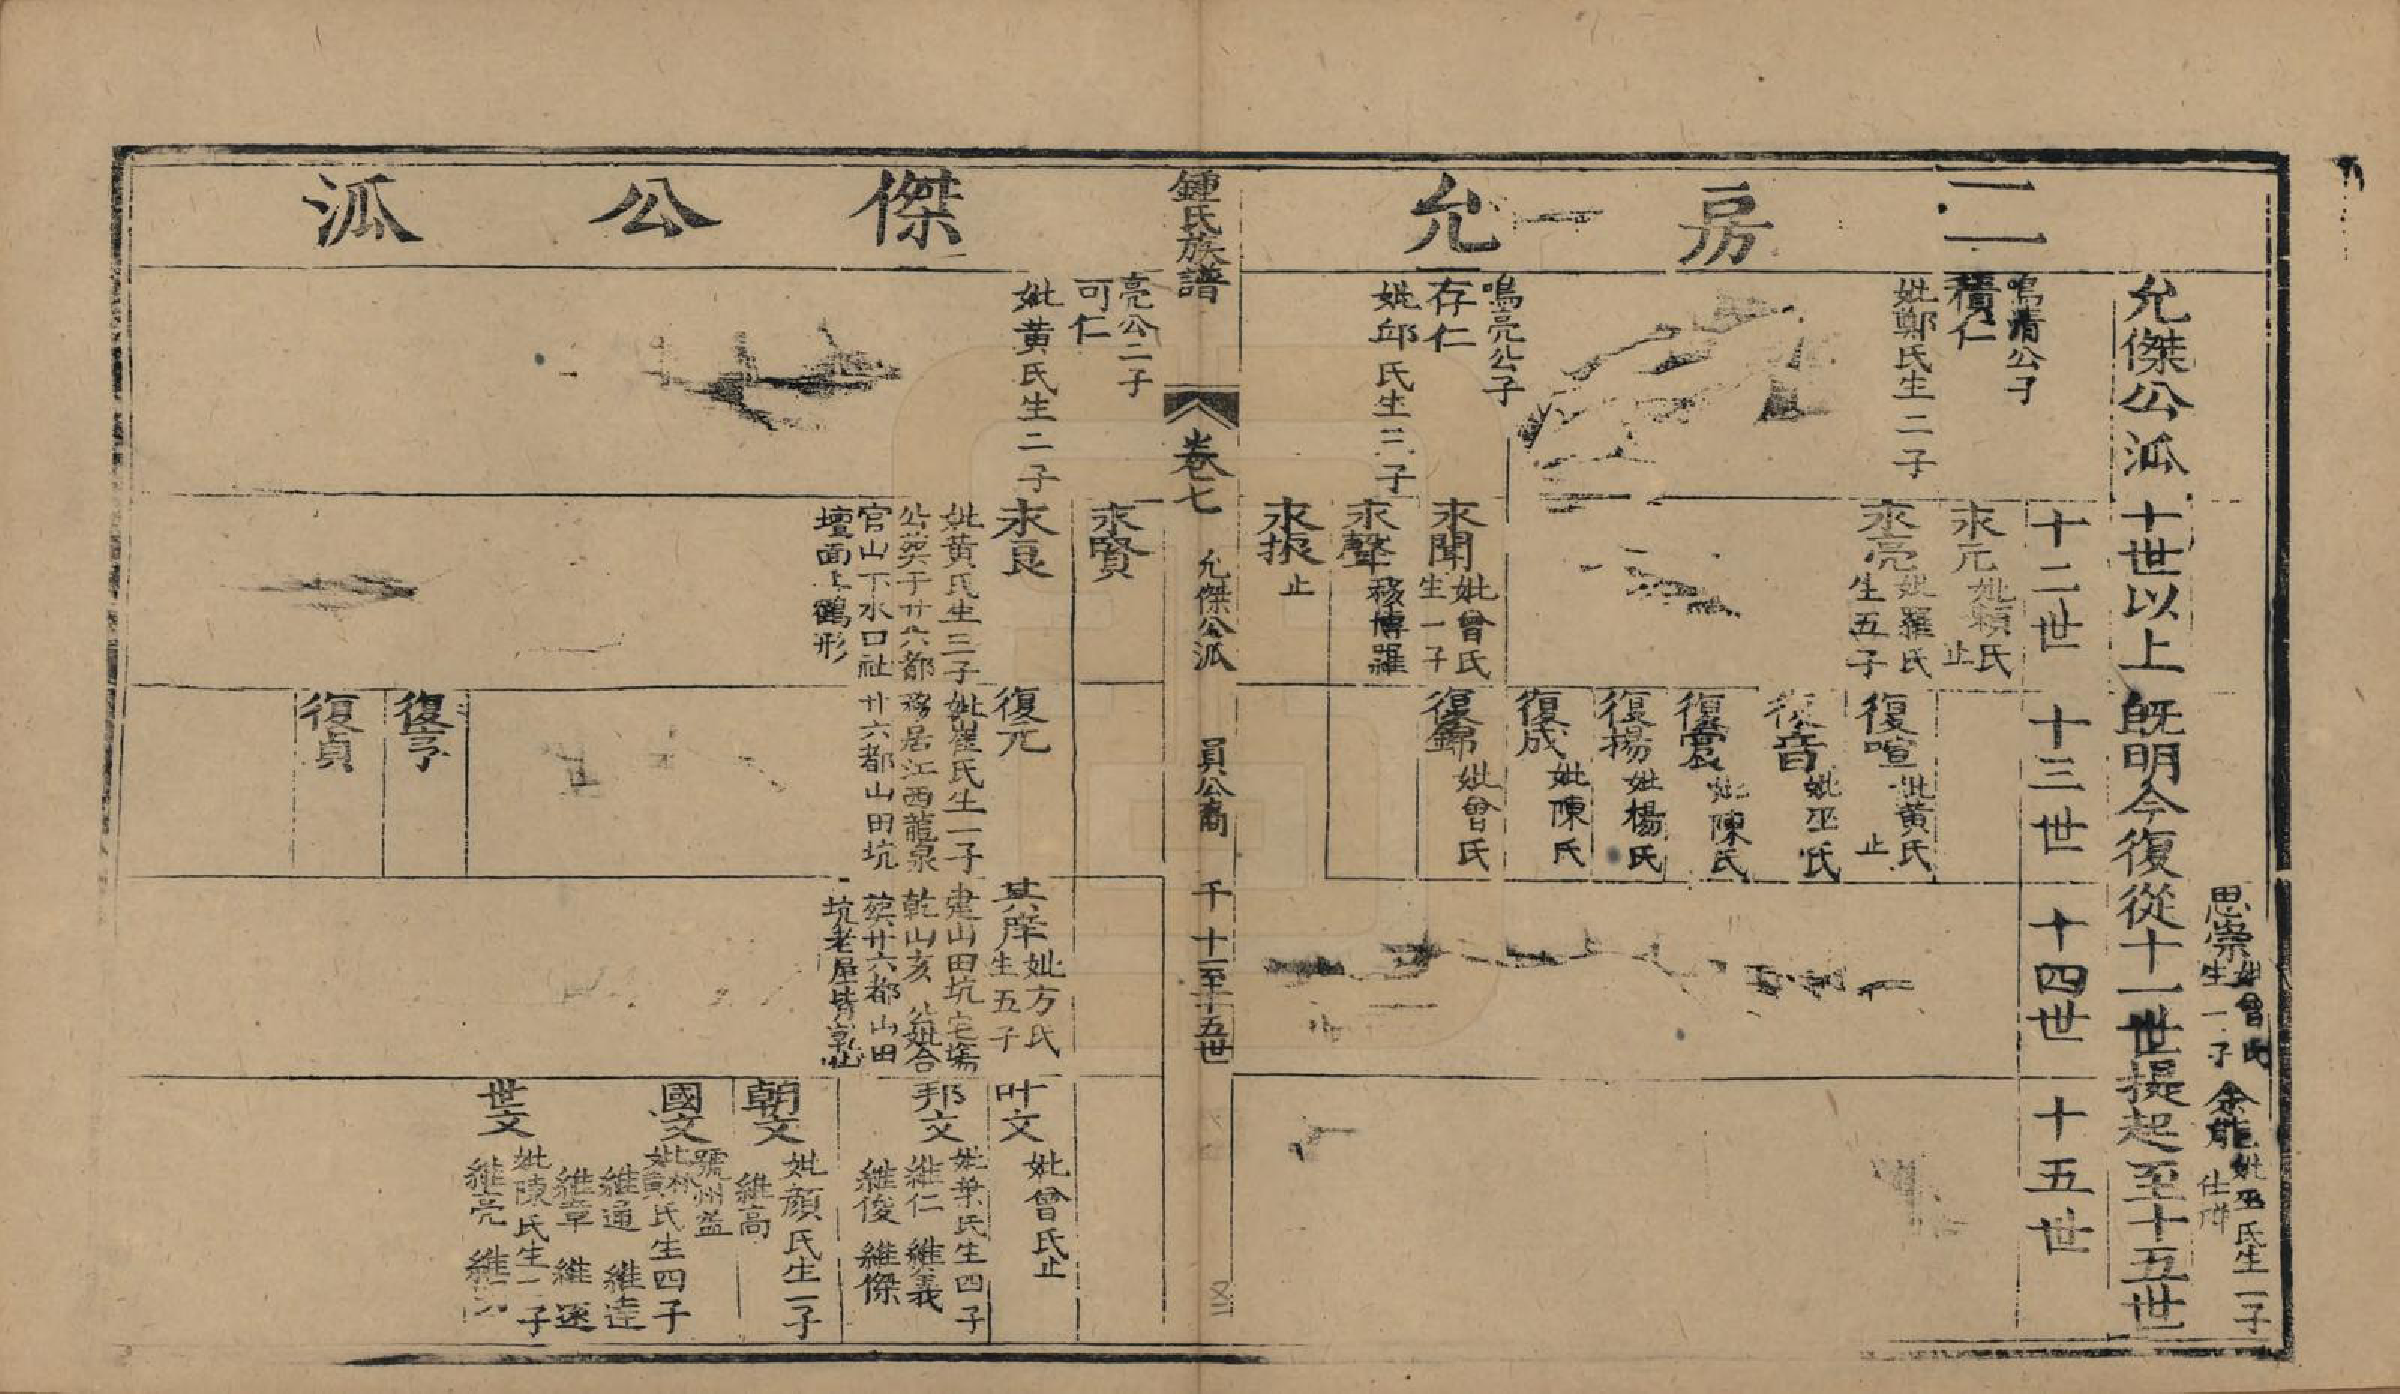 二房允傑公派
允傑公派十世以上既明今復從十一世提起至十五世
思崇
妣曾氏
生一子
妣巫氏生二子
十二世
十三世
十四世
十五世
鳴清公子
積仁
妣鄭氏生二子
永元
妣賴氏
止
永亮
妣羅氏
生五子
復喧
妣黃氏
止
復音
妣巫氏
復裳
妣陳氏
復揚
妣楊氏
復成
妣陳氏
復錦
妣曾氏
鳴亮公子
存仁
妣邱氏生三子
永聞
妣曾氏
生一子
永聲
移博羅
永振
止
鍾氏族譜
卷七
允傑公派
員公裔
十一至十五世
亮公二子
可仁
妣黃氏生二子
永賢
永良
妣黃氏生三子
公葬于廿六都
官山下水口社
壇面上鶴形
復元
妣崔氏生一子
移居江西龍泉
廿六都山田坑
其庠
妣方氏
生五子
建山田坑宅塲
乾山亥 公妣合
葬廿六都山田
坑老屋背
叶文
妣曾氏止
邦文
妣葉氏生四子
維仁 維義
維俊 維傑
朝文
妣顏氏生一子
維高
國文
號州益
妣林黃氏生四子
維通 維達
維章 維遂
世文
妣陵氏生二子
維亮
復亨
復貞